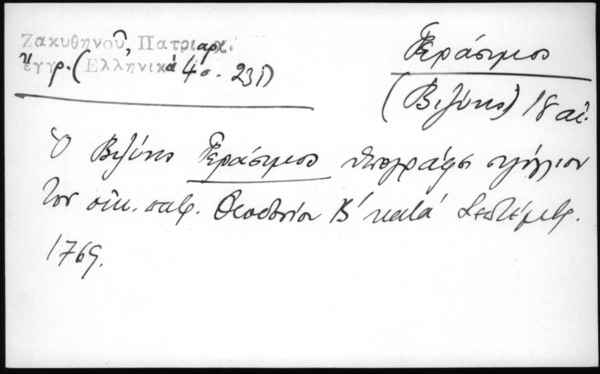 Ζακυθηνοῦ, Πατριαρχ.
ἔγγρ. (Ἑλληνικά 4 σ. 231)
Γεράσιμος
(Βιζύης) 18 αἰ.
Ὁ Βιζύης Γεράσιμος ὑπογράφει σιγίλλιον
τοῦ οἰκ. πατρ. Θεοδοσίου Β΄ κατά Σεπτέμβρ.
1769.